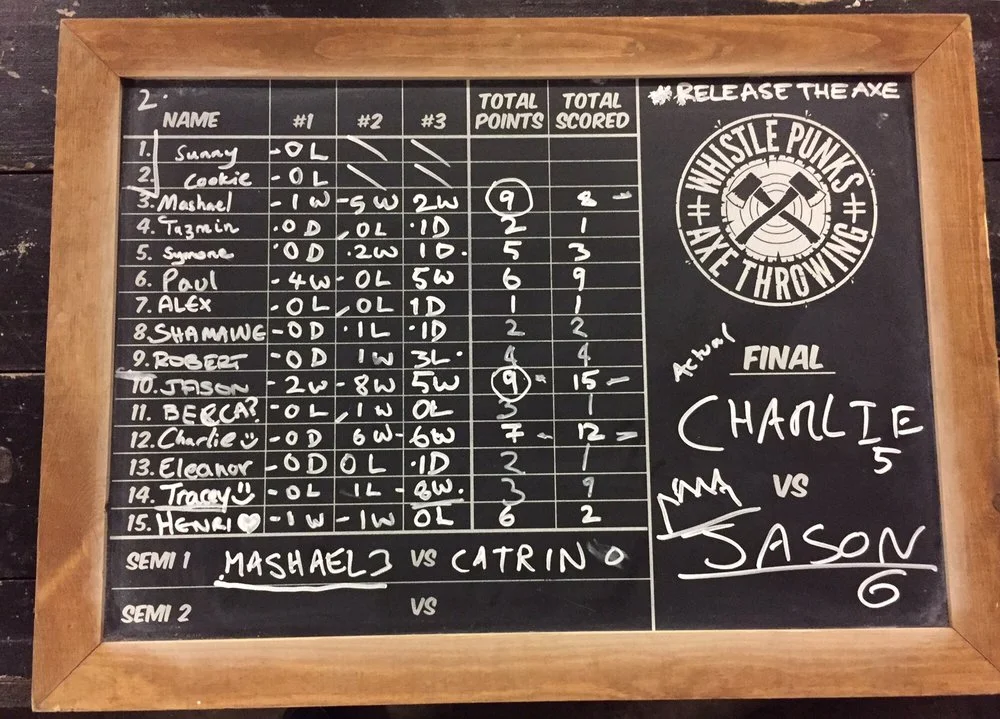 2.
NAME #1 #2 #3 TOTAL POINTS TOTAL SCORED
1. Sunny - 0 L
2. Cookie - 0 L
3. Mashael - 1 W - 5 W 2 W 9 8 -
4. Tazmin · 0 D 0 L · 1 D 2 1
5. Symone · 0 D · 2 W 1 D · 5 3
6. Paul - 4 W - 0 L 5 W 6 9
7. ALEX - 0 L 0 L 1 D 1 1
8. SHAMAWE - 0 D · 1 L · 1 D 2 2
9. ROBERT - 0 D 1 W 3 L · 4 4
10. JASON - 2 W - 8 W 5 W 9 - 15 -
11. BECCA? - 0 L 1 W 0 L 3 1
12. Charlie - 0 D 6 W - 6 W 7 - 12 -
13. Eleanor - 0 D 0 L · 1 D 2 1
14. Tracey - 0 L 1 L - 8 W · 3 9
15. HENRI - 1 W - 1 W 0 L 6 2
SEMI 1 MASHAEL 3 VS CATRIN 0
SEMI 2 VS
#RELEASE THE AXE
WHISTLE PUNKS
# #
AXE THROWING
Actual
FINAL
CHARLIE
5
VS
JASON
6